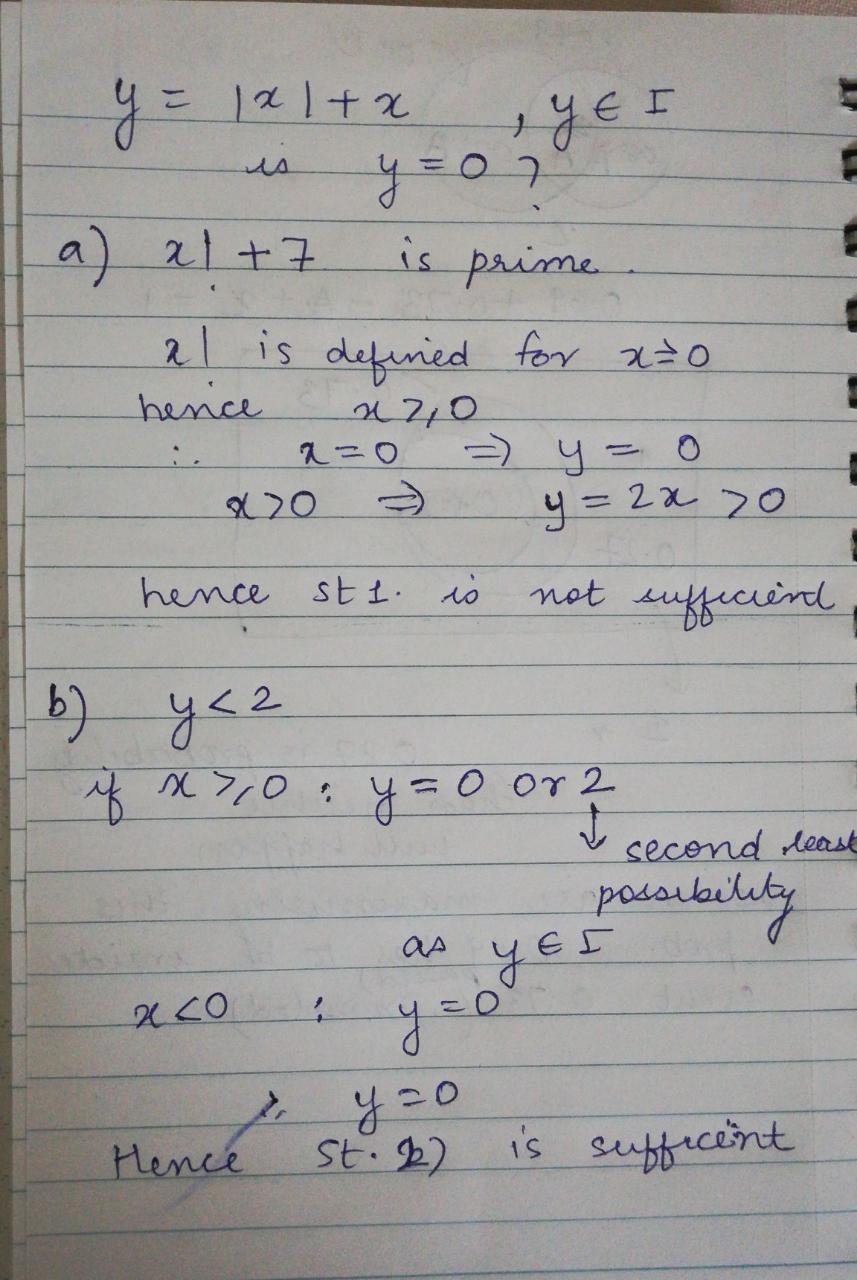 y = |x| + x , y ∈ I
is y = 0 ?
a) x! + 7 is prime.
x! is defined for x ≥ 0
hence x ≥ 0
∴ x = 0 ⇒ y = 0
x > 0 ⇒ y = 2x > 0
hence st 1. is not sufficient
b) y < 2
if x ≥ 0 : y = 0 or 2
↓ second least
possibility
as y ∈ I
x < 0 : y = 0
∴ y = 0
Hence St. 2) is sufficient